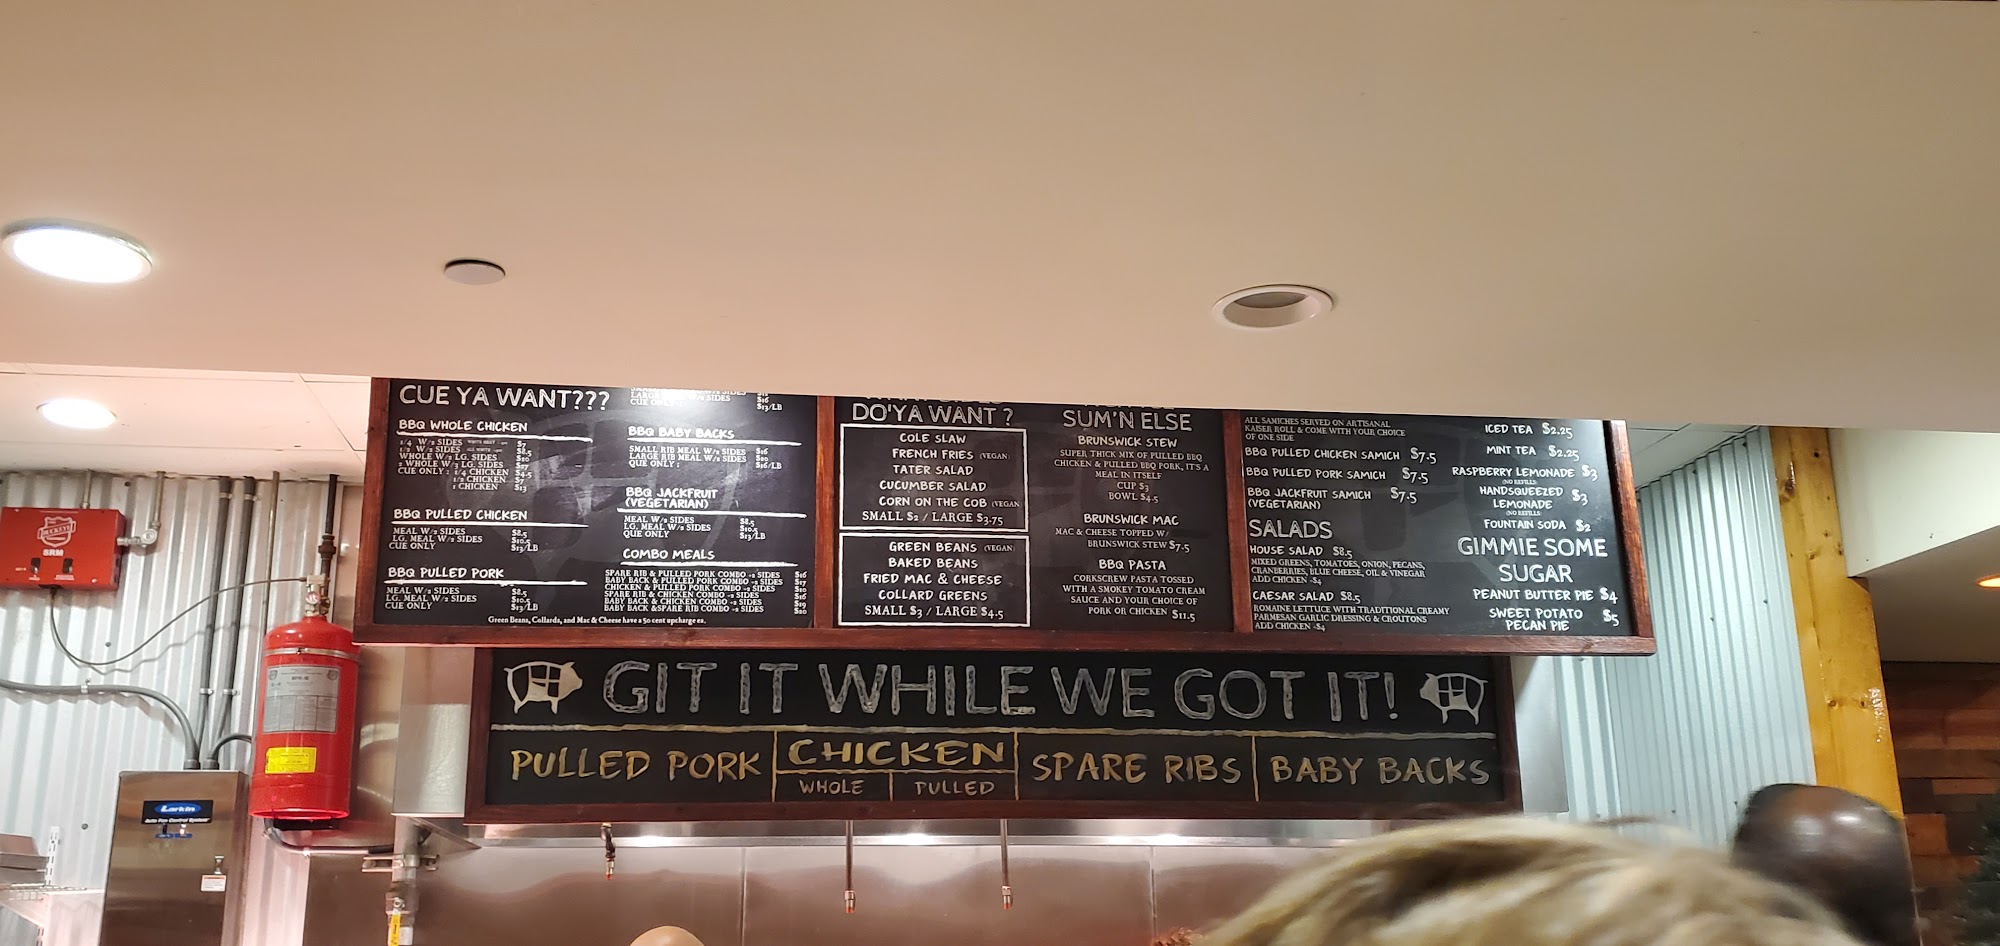 CUE YA WANT???
BBQ WHOLE CHICKEN
1/4 W/2 SIDES $7
1/2 W/2 SIDES $8.5
WHOLE W/2 LG. SIDES $20
2 WHOLE W/3 LG. SIDES $27
CUE ONLY : 1/4 CHICKEN $4.5
1/2 CHICKEN $7
1 CHICKEN $13
BBQ PULLED CHICKEN
MEAL W/2 SIDES $8.5
LG. MEAL W/2 SIDES $10.5
CUE ONLY $13/LB
BBQ PULLED PORK
MEAL W/2 SIDES $8.5
LG. MEAL W/2 SIDES $10.5
CUE ONLY $13/LB
W/2 SIDES $16
$13/LB
BBQ BABY BACKS
SMALL RIB MEAL W/2 SIDES $16
LARGE RIB MEAL W/2 SIDES $20
QUE ONLY : $16/LB
BBQ JACKFRUIT
(VEGETARIAN)
MEAL W/2 SIDES $8.5
LG. MEAL W/2 SIDES $10.5
QUE ONLY $13/LB
COMBO MEALS
SPARE RIB & PULLED PORK COMBO +2 SIDES $16
BABY BACK & PULLED PORK COMBO +2 SIDES $17
CHICKEN & PULLED PORK COMBO +2 SIDES
SPARE RIB & CHICKEN COMBO +2 SIDES $16
BABY BACK & CHICKEN COMBO +2 SIDES $19
BABY BACK & SPARE RIB COMBO +2 SIDES $20
Green Beans, Collards, and Mac & Cheese have a 50 cent upcharge ea.
DO'YA WANT ?
COLE SLAW
FRENCH FRIES (VEGAN)
TATER SALAD
CUCUMBER SALAD
CORN ON THE COB (VEGAN
SMALL $2 / LARGE $3.75
GREEN BEANS (VEGAN)
BAKED BEANS
FRIED MAC & CHEESE
COLLARD GREENS
SMALL $3 / LARGE $4.5
SUM'N ELSE
BRUNSWICK STEW
SUPER THICK MIX OF PULLED BBQ
CHICKEN & PULLED BBQ PORK, IT'S A
MEAL IN ITSELF
CUP $3
BOWL $4.5
BRUNSWICK MAC
MAC & CHEESE TOPPED W/
BRUNSWICK STEW $7.5
BBQ PASTA
CORKSCREW PASTA TOSSED
WITH A SMOKEY TOMATO CREAM
SAUCE AND YOUR CHOICE OF
PORK OR CHICKEN $11.5
ALL SAMICHES SERVED ON ARTISANAL
KAISER ROLL & COME WITH YOUR CHOICE
OF ONE SIDE
BBQ PULLED CHICKEN SAMICH $7.5
BBQ PULLED PORK SAMICH $7.5
BBQ JACKFRUIT SAMICH $7.5
(VEGETARIAN)
SALADS
HOUSE SALAD $8.5
MIXED GREENS, TOMATOES, ONION, PECANS,
CRANBERRIES, BLUE CHEESE, OIL & VINEGAR
ADD CHICKEN -$4
CAESAR SALAD $8.5
ROMAINE LETTUCE WITH TRADITIONAL CREAMY
PARMESAN GARLIC DRESSING & CROUTONS
ADD CHICKEN -$4
ICED TEA $2.25
MINT TEA $2.25
RASPBERRY LEMONADE $3
(NO REFILLS)
HANDSQUEEZED $3
LEMONADE
(NO REFILLS)
FOUNTAIN SODA $2
GIMMIE SOME
SUGAR
PEANUT BUTTER PIE $4
SWEET POTATO $5
PECAN PIE
GIT IT WHILE WE GOT IT!
PULLED PORK
CHICKEN
WHOLE
PULLED
SPARE RIBS
BABY BACKS
BUCKEYE
SRM
Larkin
Auto Fan Control System